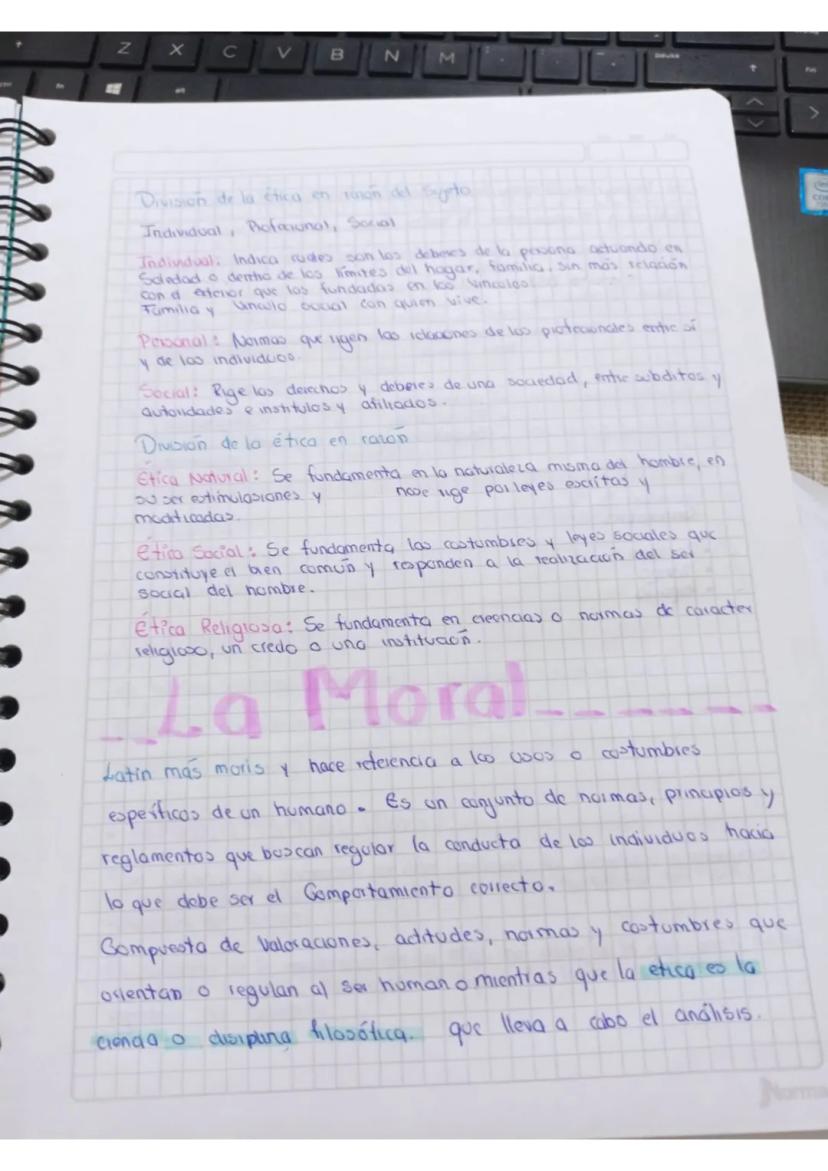 Z X C V B N M
División de la ética en razón del sujeto
Individual, Profecional, Social
Individual: Indica cuales son los deberes de la persona actuando en
Soledad o dentro de los límites del hogar, familia, sin más relación
con el exterior que las fundadas en los vinculos
Familia y vinculo social con quien vive.
Personal: Normas que rigen las relaciones de los profecionales entre sí
y de los individuos.
Social: Rige los derechos y deberes de una sociedad, entre subditos y
autoridades e institutos y afiliados.
División de la ética en razón
Ética Natural: Se fundamenta en la naturaleza misma del hombre, en
su ser estimulasiones y nose rige por leyes escritas y
modificadas.
ética Social: Se fundamenta las costumbres y leyes sociales que
constituye el bien común y responden a la realización del ser
social del hombre.
Ética Religiosa: Se fundamenta en creencias o normas de caracter
religioso, un credo o una institución.
La Moral
Latin más moris y hace referencia a los usos o costumbres
espesíficos de un humano. Es un conjunto de normas, principios y
reglamentos que buscan regular la conducta de los individuos hacia
lo que debe ser el Comportamiento correcto.
Compuesta de Valoraciones, actitudes, normas y costumbres que
orientan o regulan al ser humano mientras que la etica es la
ciencia o disiplina filosófica. que lleva a cabo el análisis.
Norma